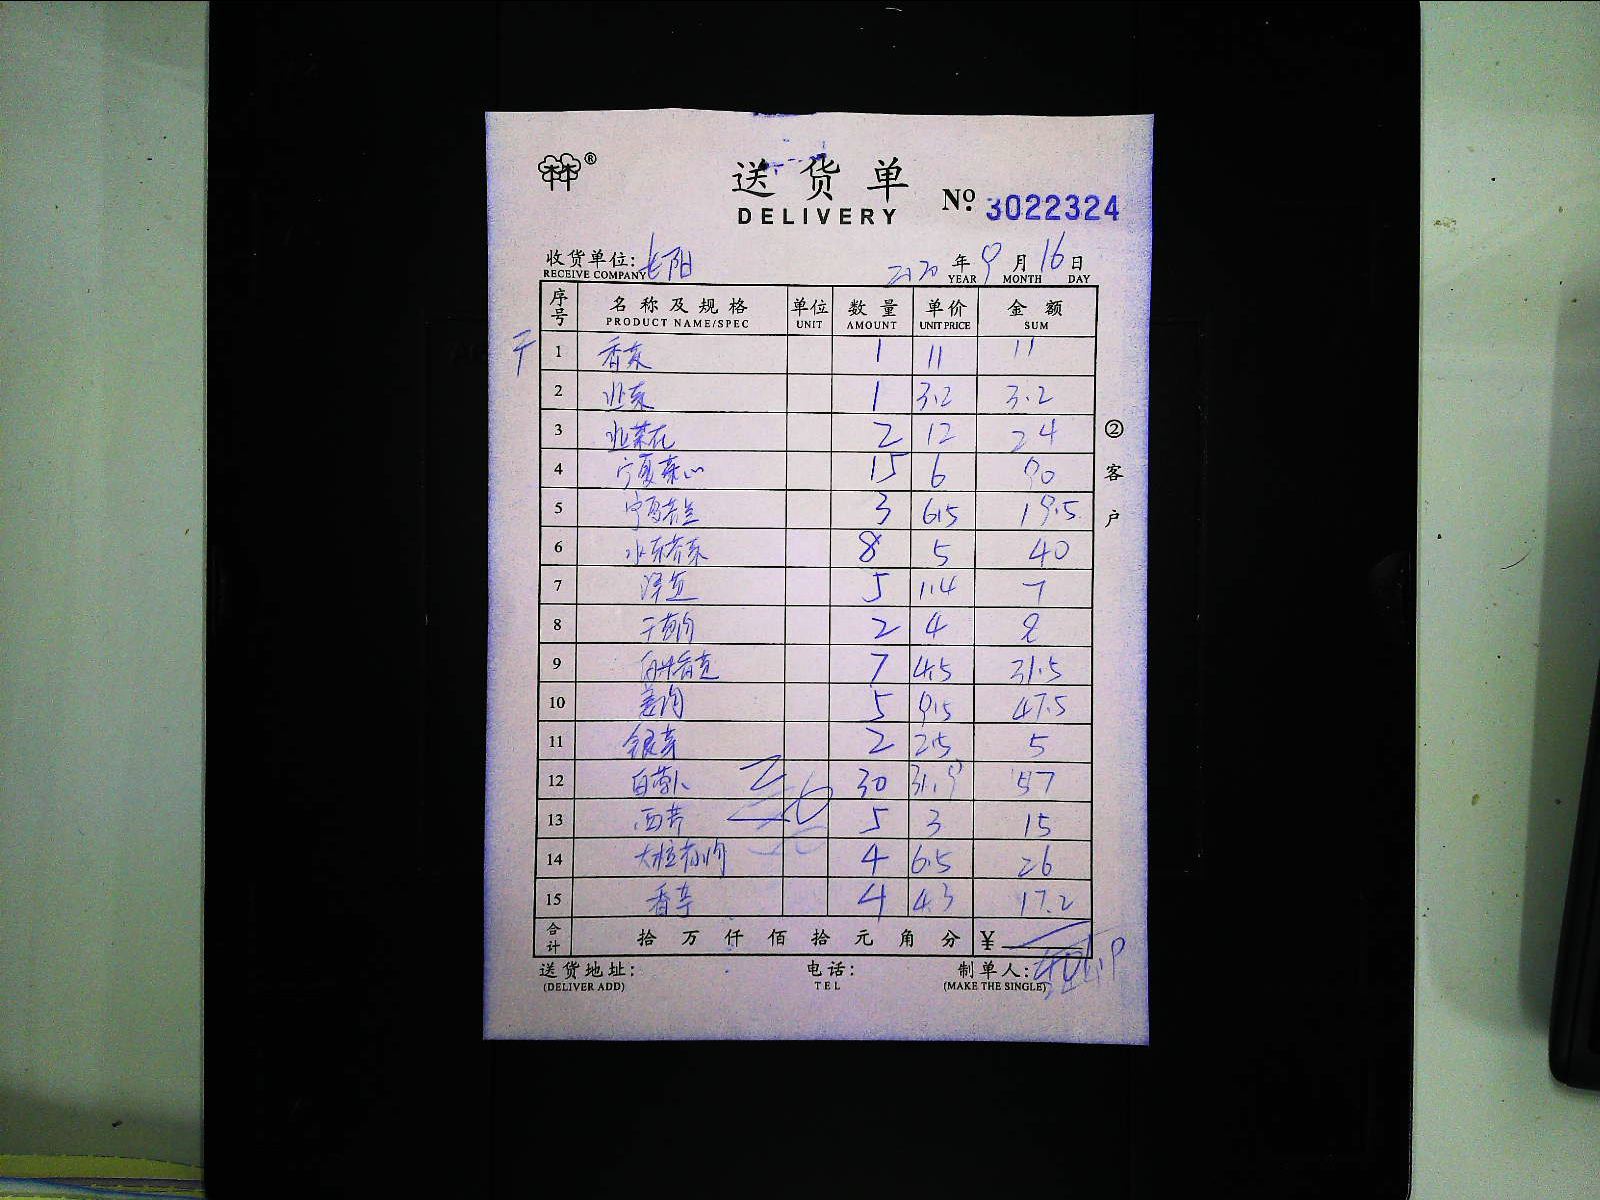 ® 送货单
DELIVERY
№ 3022324
收货单位: 七阳 2020 年 9 月 16 日
RECEIVE COMPANY YEAR MONTH DAY
序号 名称及规格 单位 数量 单价 金额
PRODUCT NAME/SPEC UNIT AMOUNT UNIT PRICE SUM
干 1 香菜 1 11 11
2 韭菜 1 3.2 3.2
3 韭菜花 2 12 24
4 宁夏菜心 15 6 90
5 宁夏芥兰 3 6.5 19.5
6 水东芥菜 8 5 40
7 5 1.4 7
8 干葱肉 2 4 8
9 7 4.5 31.5
10 姜肉 5 9.5 47.5
11 银芽 2 2.5 5
12 白萝卜 30 1.9 57
13 西芹 5 3 15
14 大粒蒜肉 4 6.5 26
15 香芋 4 4.3 17.2
合计 拾 万 仟 佰 拾 元 角 分 ¥
送货地址: 电话: 制单人:
(DELIVER ADD) TEL (MAKE THE SINGLE)
② 客户